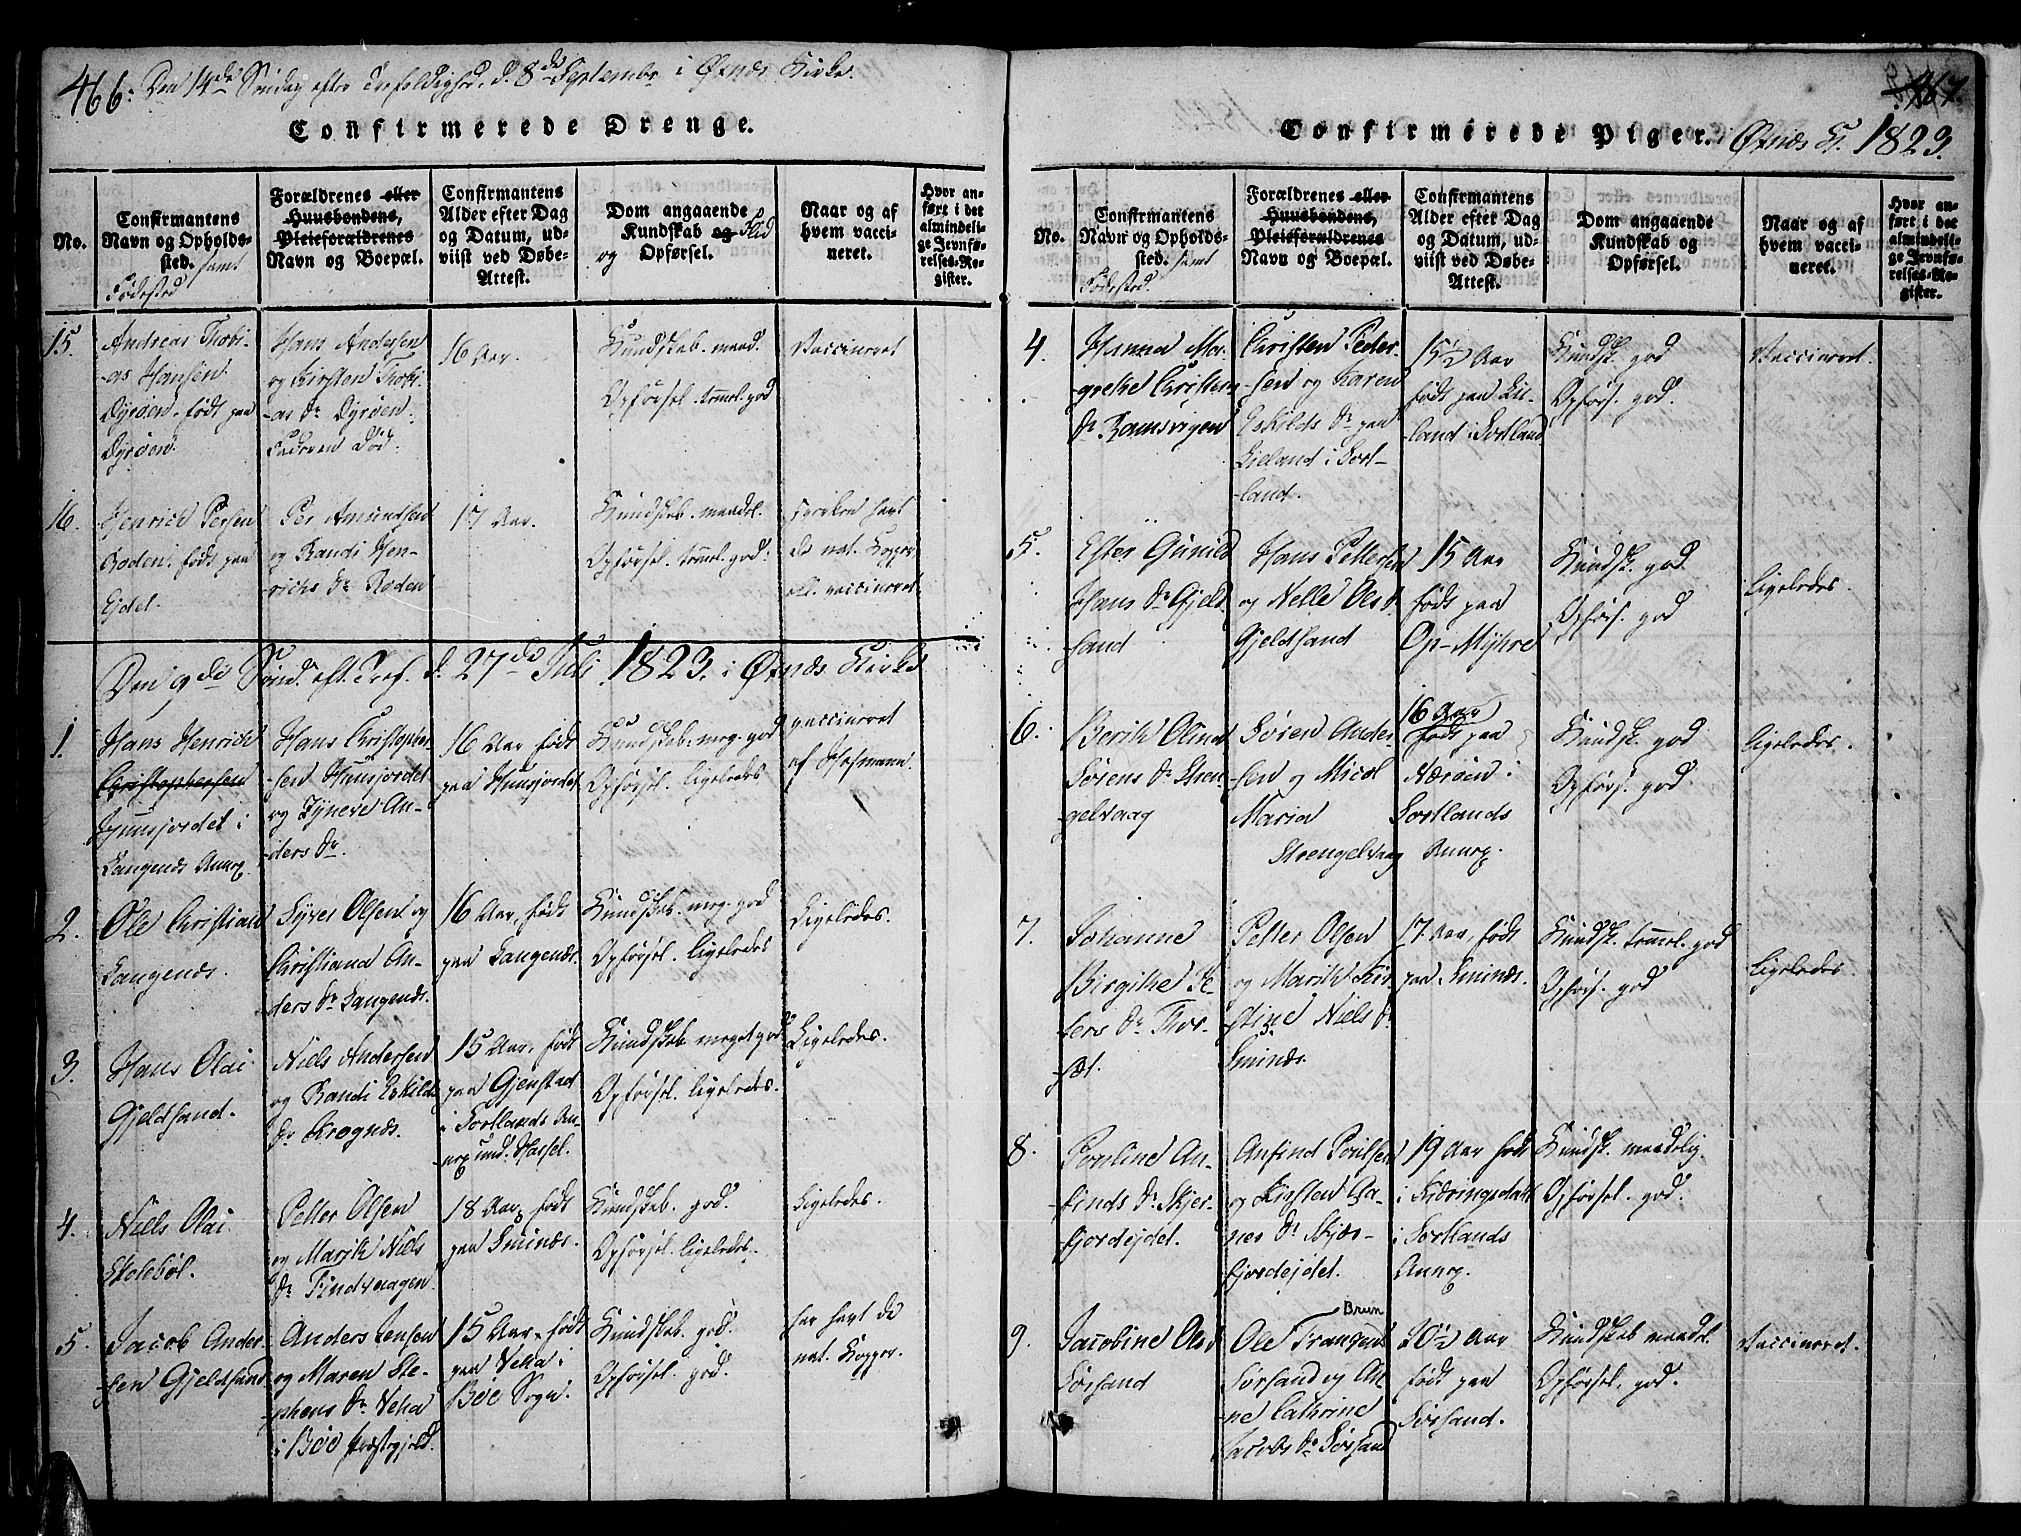 466. Den 14de Søndag efter Trefoldighed, d. 8de Septembr i Øxnæs Kirke.
Confirmerede Drenge.
No.
Confirmantens
Navn og Opholds-
sted. samt
Fødested
Forældrenes eller
Huusbondens,
Pleieforældrenes
Navn og Boepæl.
Confirmantens
Alder efter Dag
og Datum, ud-
viist ved Døbe-
Attest.
Dom angaaende
Kundskab og Flid
og Opførsel.
Naar og af
hvem vacci-
neret.
Hvor an-
ført i det
almindeli-
ge Jevnfø-
relses-Re-
gister.
15.
Andreas Thobi-
as Hansen
Dyrøen. født paa
Dyrøen.
Hans Andersen
og Kirsten Thobi-
as Dr Dyrøen.
Faderen død.
16 Aar.
Kundskab. maad.
Opførsel. temmel. god
Vaccineret
16.
Henrich Persen
Roden. født paa
Ejdet.
Per Amundsen
og Randi Hen-
richs Dr Roden
17 Aar.
Kundskab. maadel.
Opførsel. temmel. god.
hart
de nat. Kopper
vaccineret
Den 9de Sønd. eft. Tref. d. 27de Juli 1823. i Øxnæs Kirke
1.
Hans Henrich
Christophersen
Huusjordet i
Langenæs Annex
Hans Christopher-
sen Huusjordet
og Zyneve An-
ders Dr.
16 Aar født
paa Huusjordet
Kundskab. meg. god
Opførsel. ligeledes
vaccineret
af Hofmann.
2.
Ole Christian
Langenæs.
Syver Olsen og
Christiana An-
ders Dr Langenæs.
16 Aar, født
paa Langenæs.
Kundskab. meg. god
Opførsel. ligeledes
Ligeledes.
3.
Hans Olai
Gjeldsand.
Niels Andersen
og Randi Eskilds
Dr Krognæs.
15 Aar, født
paa Gjenstad
i Sortlands An-
nex und. Hassel.
Kundskab meget god
Opførsel. ligeledes.
Ligeledes.
4.
Niels Olai
Skolebøl.
Petter Olsen
og Marith Niels
Dr Tindvaagen
18 Aar, født
paa Sminæs.
Kundskab. god.
Opførsel. ligeledes.
Ligeledes.
5.
Jacob Ander-
sen Gjeldsand
Anders Jensen
og Maren Ste-
phens Dr Veha
i Böe Præstegjeld.
15 Aar, født
paa Veha i
Böe Sogn.
Kundskab. god.
Opførsel. god.
har hart de
nat. Kopper.
467.
Confirmerede Piger. i Øxnæs K. 1823.
No.
Confirmantens
Navn og Opholds-
sted. samt
Fødested.
Forældrenes eller
Huusbondens,
Pleieforældrenes
Navn og Boepæl.
Confirmantens
Alder efter Dag
og Datum, ud-
viist ved Døbe-
Attest.
Dom angaaende
Kundskab og
Opførsel.
Naar og af
hvem vacci-
neret.
Hvor an-
ført i det
almindeli-
ge Jevnfø-
relses-Re-
gister.
4.
Hanna Mar-
grethe Christens
Dr Ramsvigen
Christen Peder-
sen og Karen
Eskilds Dr paa
Lieland i Sort-
land.
15½ Aar
født paa Lie-
land i Sortland
Kundsk. god
Opførs. god.
Vaccineret.
5.
Ester Gunild
Hans Dr Gjeld-
sand
Hans Pettersen
og Nelle Ols Dr
Gjeldsand
15 Aar
født paa
Op-Myhre
Kundsk. god.
Opførs. god
Ligeledes.
6.
Berith Olind
Sørens Dr Stren-
gelvaag
Søren Ander-
sen og Micol
Maria
Strengelvaag
16 Aar
født paa
Nærøen i
Sortlands
Annex.
Kundsk. god
Opførs. god
Ligeledes.
7.
Johanne
Birgithe Pe-
ters Dr Thor-
sæt.
Petter Olsen
og Marith Kir-
stine Niels Dr
Sminæs.
17 Aar, født
paa Sminæs.
Kundsk. temmel. god
Opførs. god
Ligeledes.
8.
Pouline An-
finds Dr Skjer-
fjordejdet.
Anfind Poulsen
og Kirsten Aa-
nes Dr Skjær-
fjordejdet.
19 Aar født
i Kjæringsdahl
i Sortlands
Annex.
Kundsk. maadelig.
Opførsel. god.
9.
Jacobine Ols D
Sørsand
Brun
Ole Trangsen
Sørsand og An-
ne Cathrine
Jacobs Dr Sørsand
20½ Aar
født paa
Sørsand.
Kundskab maadel.
Opførsel. god.
Vaccineret.